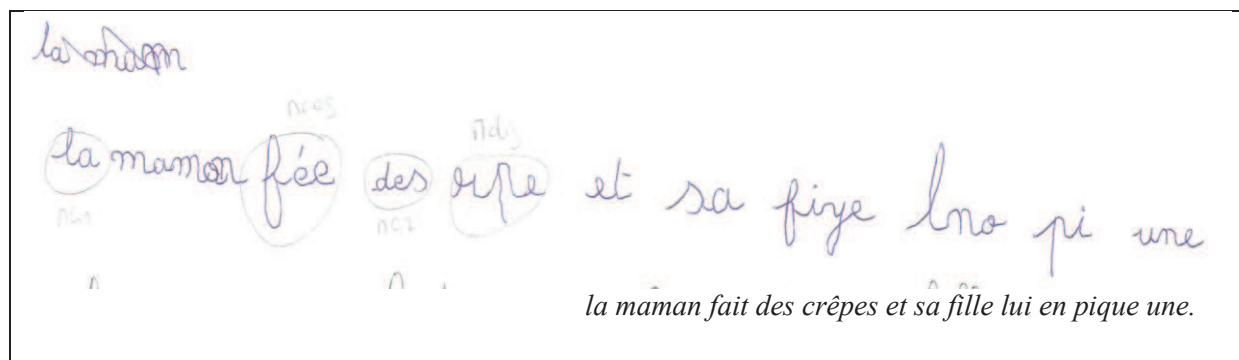 la
nces ndis
la maman fée des crpe et sa fiye lno pi une
nc1 nc2
la maman fait des crêpes et sa fille lui en pique une.